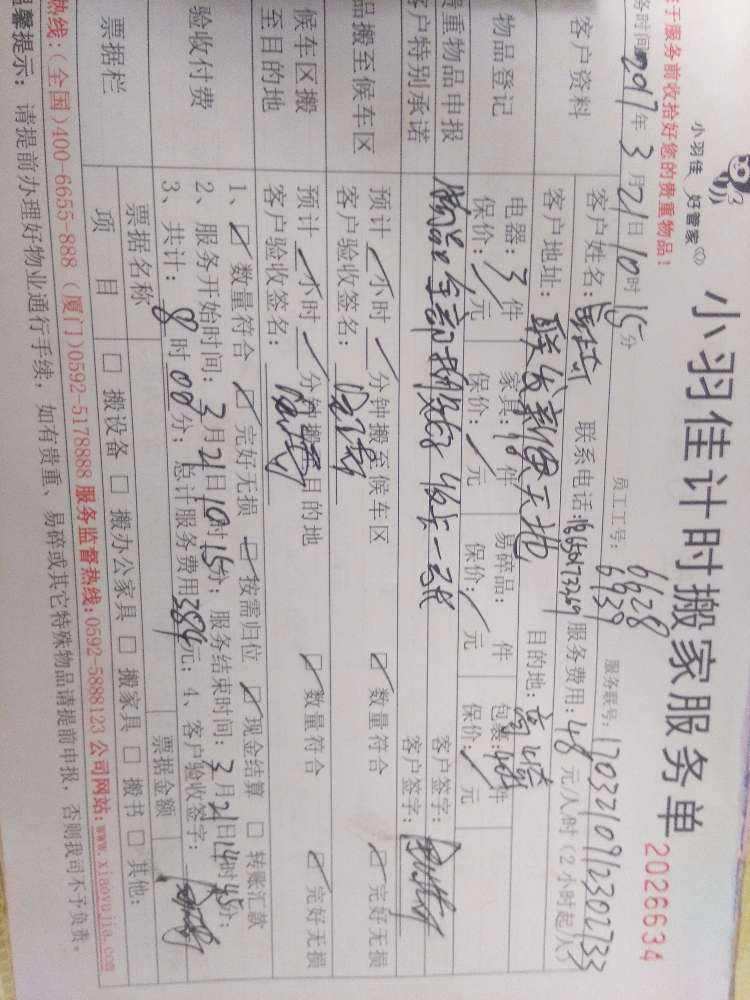 小羽佳 好管家
小羽佳计时搬家服务单
2026634
于服务前收拾好您的贵重物品!
员工工号: 6628 6639
服务联号: 1703210912302733
务时间: 2017年3月21日10时15分
客户资料
客户姓名:
联系电话:
服务费用: 48元/人/时(2小时起/人)
客户地址: 联发新天地
目的地: 高崎
物品登记
电器: 3件 家具: 件 易碎品: 件 包装: 件
保价: / 元 保价: / 元 保价: / 元 保价: / 元
贵重物品申报
客户特别承诺
客户签字:
客户签字:
品搬至候车区
预计 小时 分钟搬至候车区 ☑数量符合 ☑完好无损
客户验收签名:
候车区搬
至目的地
预计 小时 分钟搬至目的地 ☑数量符合 ☑完好无损
客户验收签名:
验收付费
1、☑数量符合 ☑完好无损 ☑按需归位 ☑现金结算 □转账汇款
2、服务开始时间: 3月21日10时15分; 服务结束时间: 3月21日14时45分;
3、共计: 8时00分; 总计服务费用384元; 4、客户验收签字:
票据栏
票据名称 票据金额
项目 □搬设备 □搬办公家具 □搬家具 □搬书 □其他:
热线:(全国)400-6655-888 (厦门)0592-5178888 服务监督热线:0592-5888123 公司网站:www.xiaoyujia.com
温馨提示: 请提前办理好物业通行手续, 如有贵重、易碎或其它特殊物品请提前申报, 否则我司不予负责。